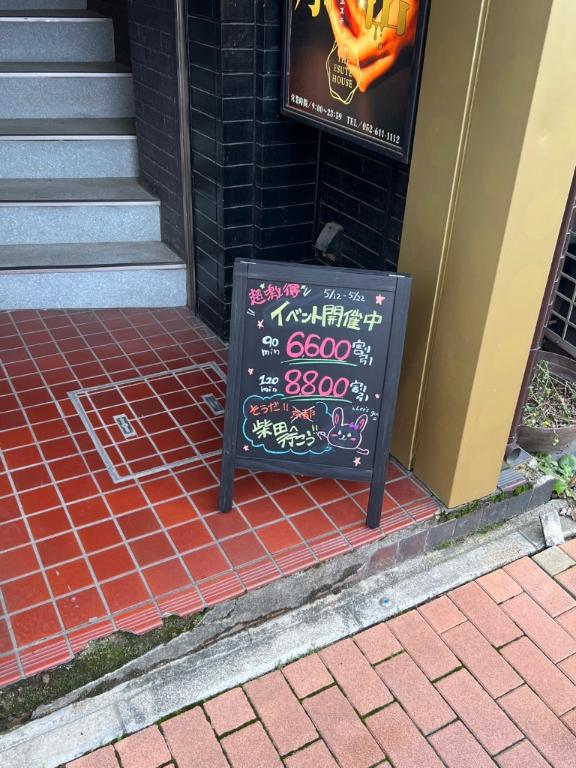 THE
ESUTE
HOUSE
営業時間/9:00~23:59 TEL/052-611-1112
超激得!! 5/12-5/22
イベント開催中
90min 6,600 割引
120min 8,800 割引
そうだ!! 京都 Let's go
柴田へ行こう